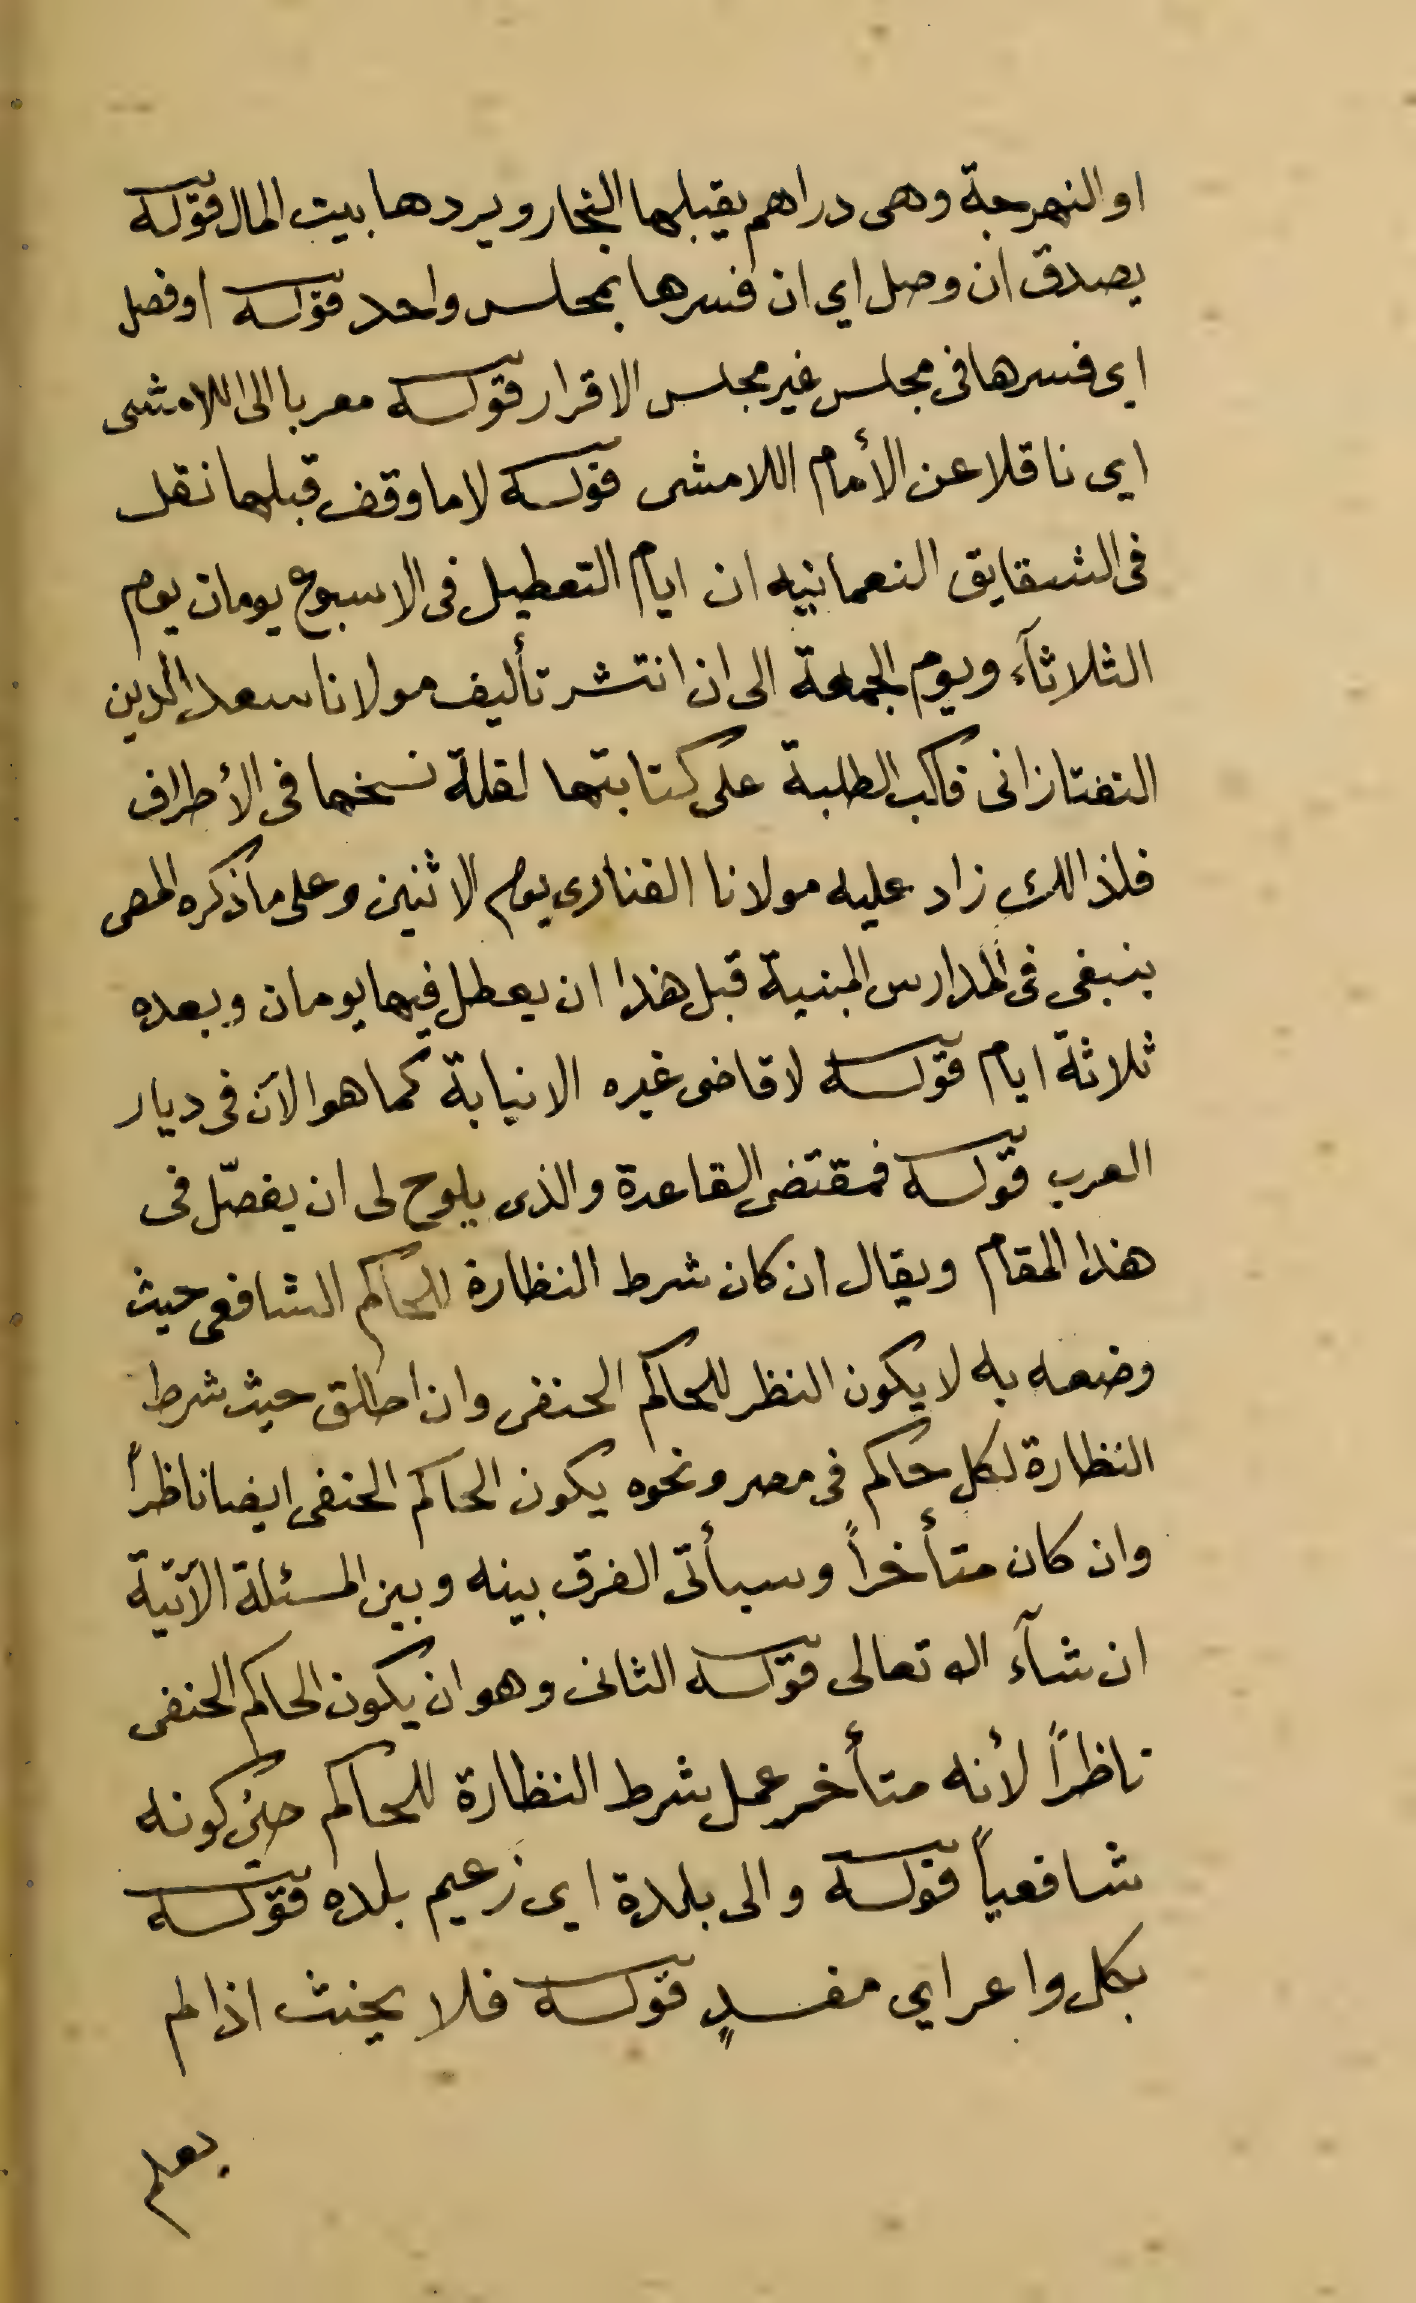 او النهرجة وهى دراهم يقبلها التجار ويردها بيت المال قوله
يصدق ان وصل اي ان فسرها بمجلس واحد قوله اوفصل
اي فسرها فى مجلس غير مجلس الاقرار قوله معربا الى اللامشى
اي ناقلا عن الأمام اللامشى قوله لا ما وقف قبلها نقل
فى الشقايق النعمانيه ان ايام التعطيل فى الاسبوع يومان يوم
الثلاثآء ويوم الجمعة الى ان انتشر تأليف مولانا سعد الدين
التفتازانى فاكب الطلبة على كتابتها لقلة نسخها فى الأطراف
فلذالك زاد عليه مولانا الفنارى يوم الاثنين وعلى ما ذكره المص
ينبغى فى المدارس المبنية قبل هذا ان يعطل فيها يومان وبعده
ثلاثة ايام قوله لا قاضى غيره الا نيابة كما هو الآن فى ديار
العرب قوله فمقتضى القاعدة والذى يلوح لى ان يفصّل فى
هذا المقام ويقال ان كان شرط النظارة للحاكم الشافعى حيث
وضعه به لا يكون النظر للحاكم الحنفى وان اطلق حيث شرط
النظارة لكل حاكم فى مصر ونحوه يكون الحاكم الحنفى ايضا ناظراً
وان كان متأخراً وسيأتى الفرق بينه وبين المسئلة الآتية
ان شآء الله تعالى قوله الثانى وهو ان يكون الحاكم الحنفى
ناظراً لأنه متأخر عمل شرط النظارة للحاكم حين كونه
شافعياً قوله والى بلدة اي زعيم بلده قوله
بكل واعر اي مفسدٍ قوله فلا يحنث اذا لم
يعلم